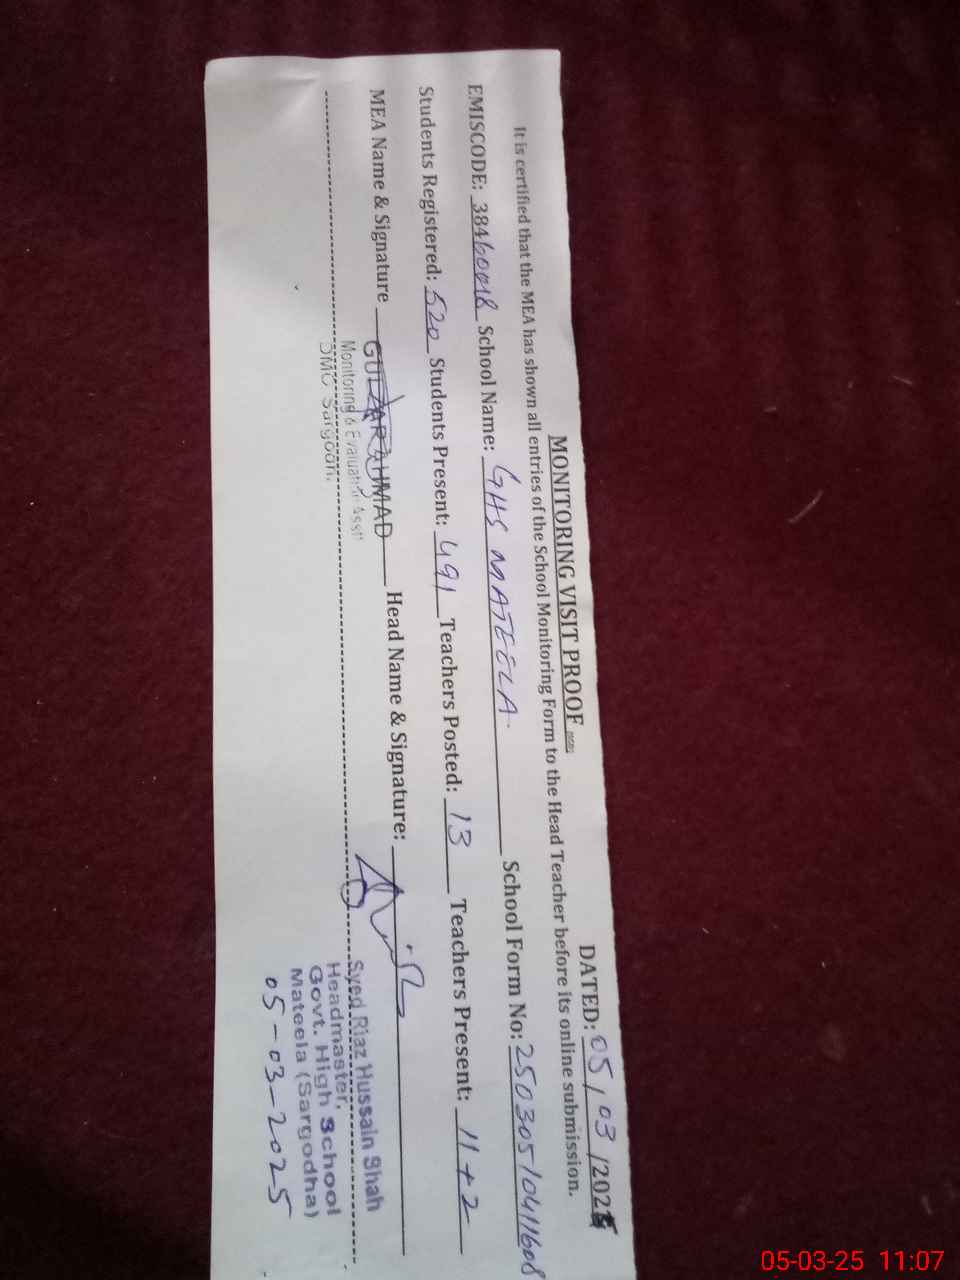 MONITORING VISIT PROOF
DATED: 05/03/2025
It is certified that the MEA has shown all entries of the School Monitoring Form to the Head Teacher before its online submission.
EMISCODE: 38460018 School Name: GHS MATEELA. School Form No: 25030510411608
Students Registered: 520 Students Present: 491 Teachers Posted: 13 Teachers Present: 11+2
MEA Name & Signature GULZAR AHMAD Head Name & Signature:
Monitoring & Evaluation Asstt
DMO Sargodh
Syed Riaz Hussain Shah
Headmaster,
Govt. High School
Mateela (Sargodha)
05-03-2025
05-03-25 11:07